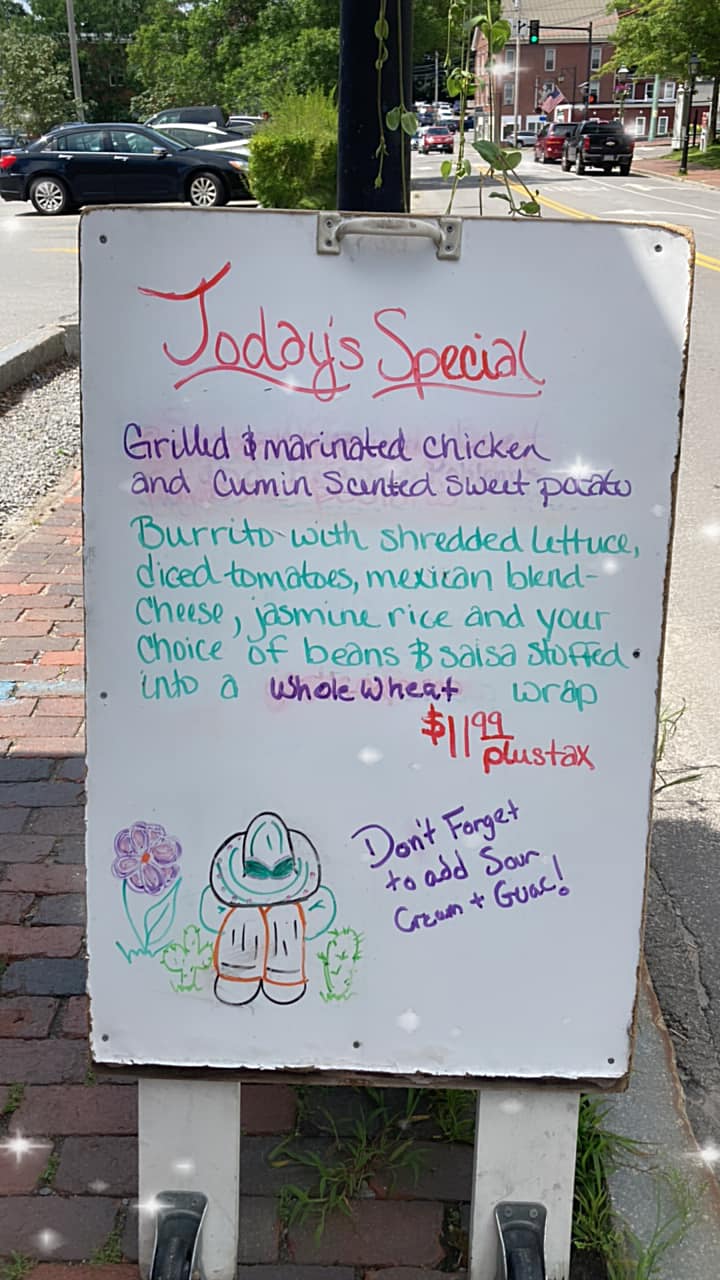 Today's Special
Grilled & marinated chicken
and Cumin Scented sweet potato
Burrito with shredded lettuce,
diced tomatoes, mexican blend-
cheese, jasmine rice and your
choice of beans & salsa stuffed
into a whole wheat wrap
$11.99
plus tax
Don't Forget
to add Sour
Cream + Guac!